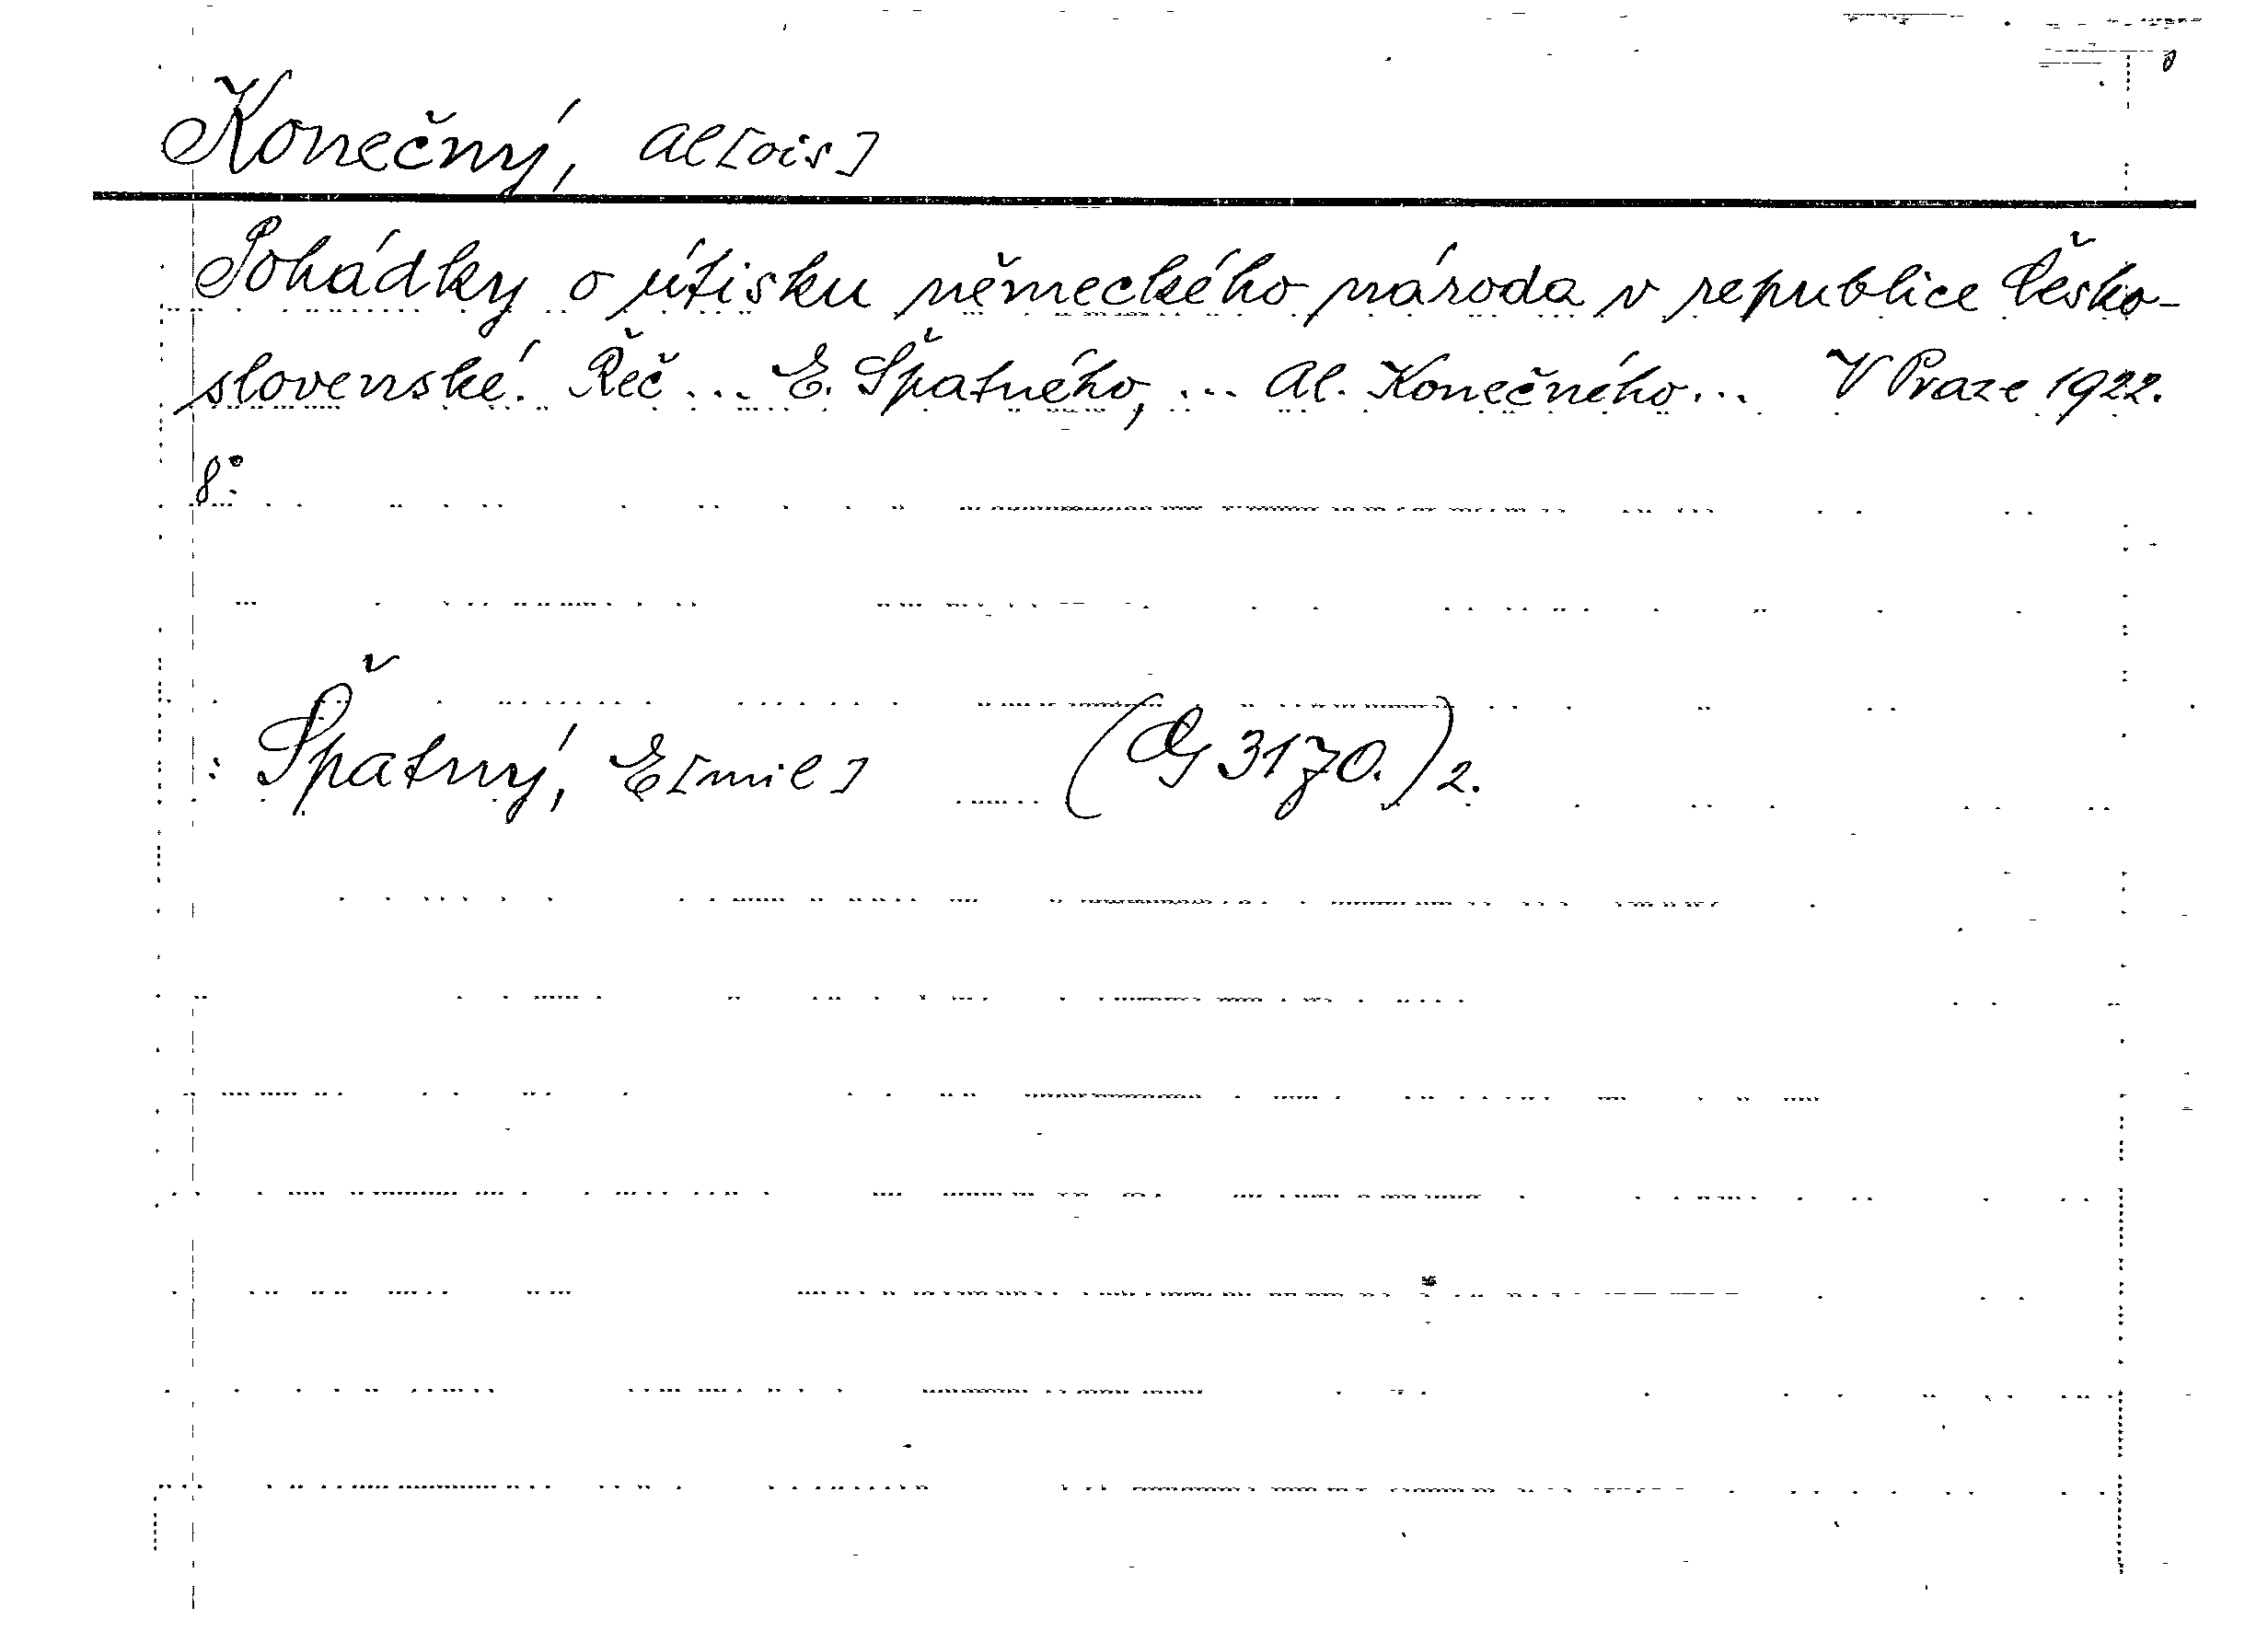 Konečný, Al[ois]
Pohádky o útisku německého národa v republice Česko-
slovenské. Řeč ... E. Špatného, ... Al. Konečného ... V Praze 1922.
8°.
: Špatný, E[mil] (G 3170.) 2.